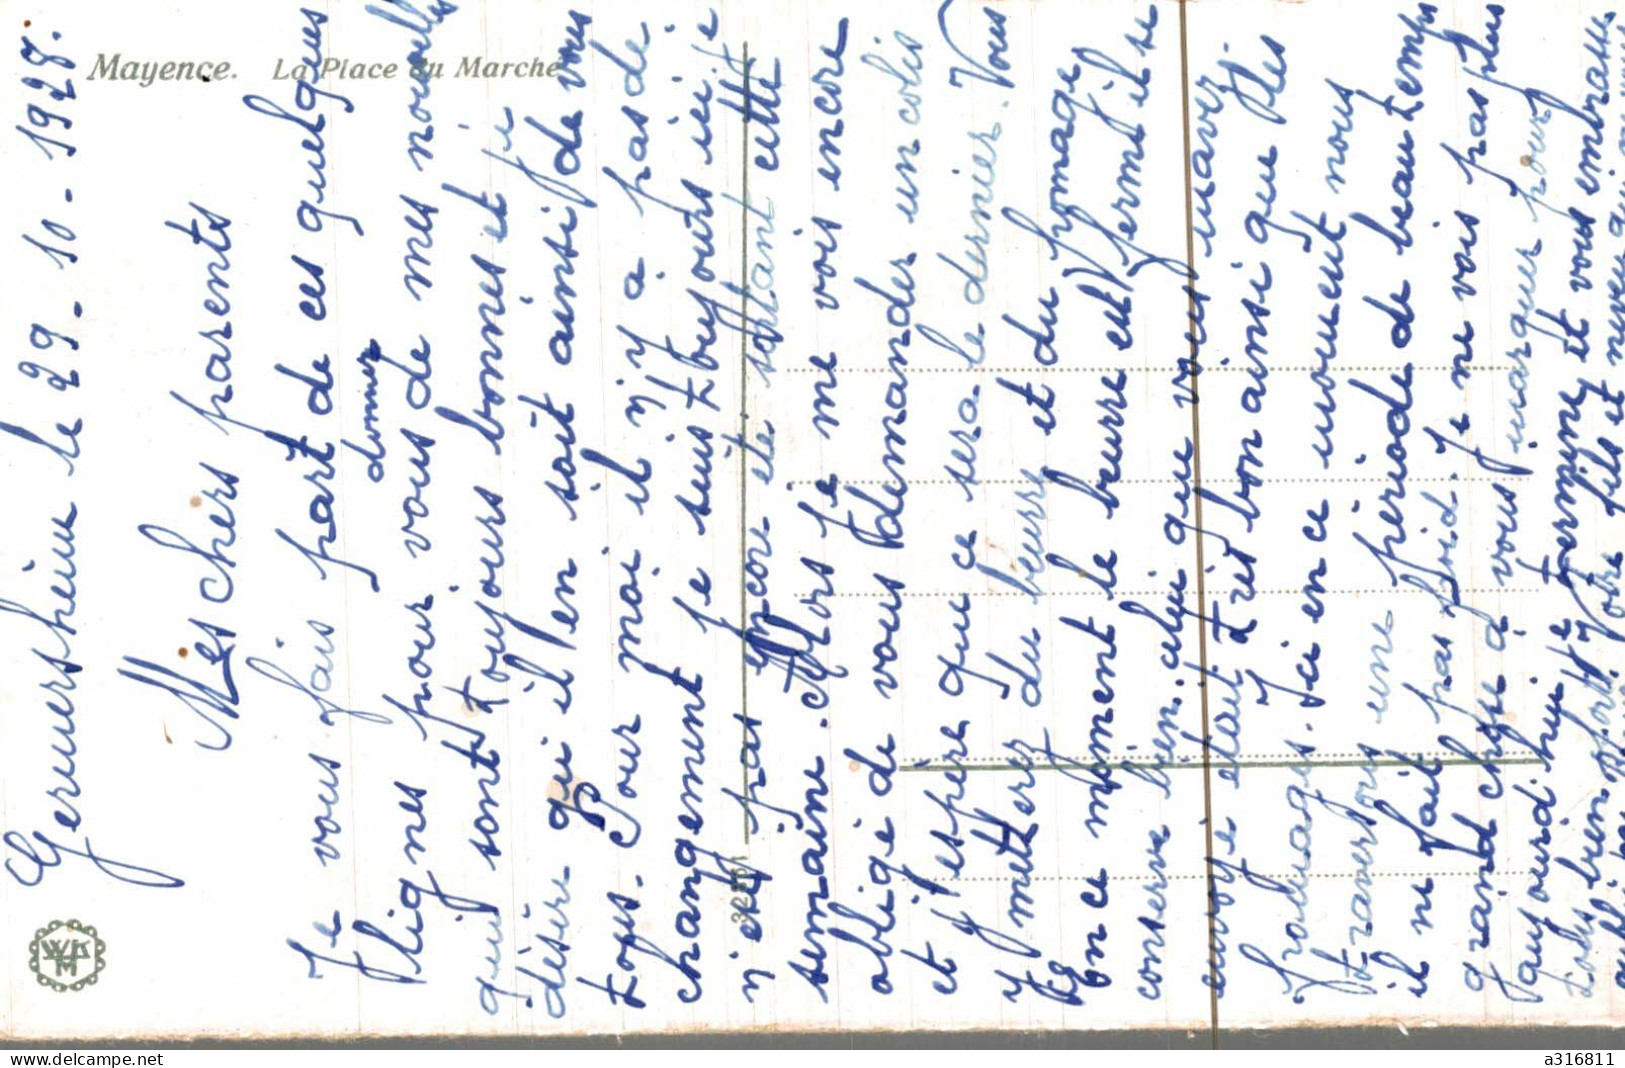 Mayence. La Place du Marché
Germersheim le 29 - 10 - 1928.
Mes chers parents
Je vous fais part de ces quelques
lignes pour vous donner de mes nouvelles
qui sont toujours bonnes et je
désire qu'il en soit ainsi de vous
tous. Pour moi il n'y a pas de
changement je suis toujours ici. je
n'est pas encore été sortant cette
semaine. Alors je me vois encore
obligé de vous demander un colis
et j'espère que ce sera le dernier. Vous
y metterez du beurre et du fromage
en ce moment le beurre est fermé il se
conserve bien. celui que vous m'avez
envoyé était très bon ainsi que les
fromages. Ici en ce moment nous
traversons une période de beau temps
il ne fait pas froid. Je ne vois pas plus
grand chose à vous marquer pour
aujourd'hui je termine et vous embrasse
tous bien fort. Votre fils et neveu qui
32861
WDK
www.delcampe.net
a316811